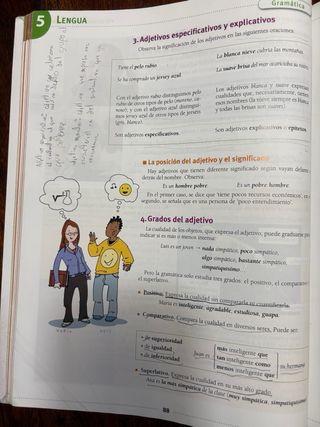 Gramática
5 LENGUA
3. Adjetivos especificativos y explicativos
Observa la significación de los adjetivos en las siguientes oraciones:
Tiene el pelo rubio
Se ha comprado un jersey azul
La blanca nieve cubría las montañas.
La suave brisa del mar acariciaba su rostro
Con el adjetivo rubio distinguimos pelo
rubio de otros tipos de pelo (moreno, ca-
noso), y con el adjetivo azul distingui-
mos jersey azul de otros tipos de jerséis
(gris, blanco).
Los adjetivos blanca y suave expresan
cualidades que, necesariamente, tienen
esos nombres (la nieve siempre es blanca
y todas las brisas son suaves).
Son adjetivos especificativos.
Son adjetivos explicativos o epítetos.
La posición del adjetivo y el significado
Hay adjetivos que tienen diferente significado según vayan delante o
detrás del nombre. Observa:
Es un hombre pobre. Es un pobre hombre.
En el primer caso, se dice que 'tiene pocos recursos económicos'; en el
segundo, se señala que es una persona de 'poco entendimiento'.
4. Grados del adjetivo
La cualidad de los objetos, que expresa el adjetivo, puede graduarse
indicar si es más o menos intensa:
Luis es un joven → nada simpático, poco simpático,
algo simpático, bastante simpático,
simpatiquísimo.
Pero la gramática solo estudia tres grados: el positivo, el comparativo
el superlativo.
• Positivo. Expresa la cualidad sin compararla
María es inteligente, agradable, estudiosa, guapa.
• Comparativo. Compara la cualidad en diversos seres. Puede ser:
• de superioridad
• de igualdad
• de inferioridad
Juan es
más inteligente que
tan inteligente como
menos inteligente que
su hermano
• Superlativo. Expresa la cualidad en su más alto grado.
Ana es la más simpática de la clase (muy simpática, simpatiquísima)
MARÍA
LUIS
88